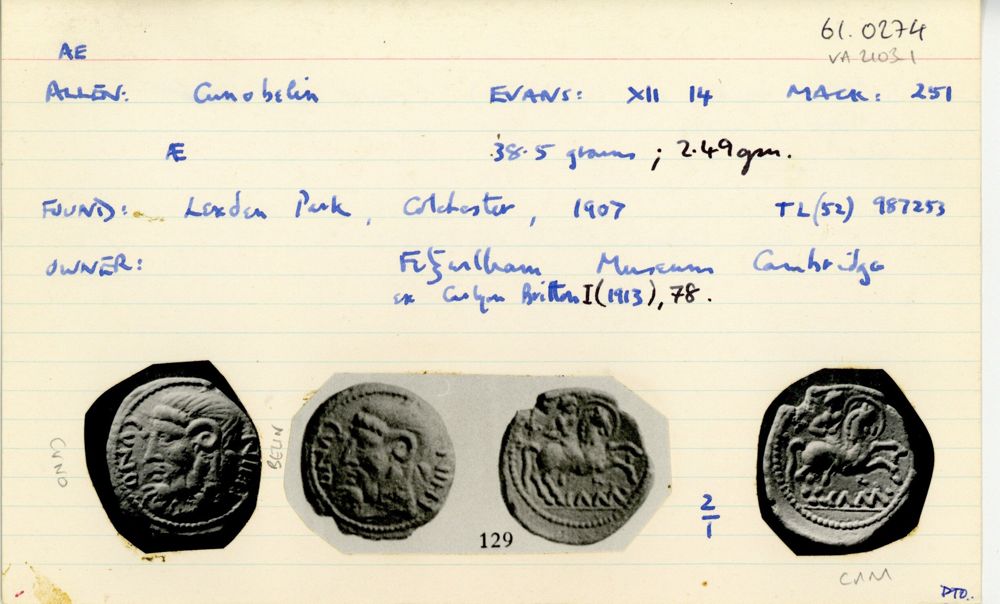 61.0274
AE
VA 2103-1
ALLEN: Cunobelin EVANS: XII 14 MACK: 251
Æ 38.5 grains ; 2.49 gm.
FOUND: Lexden Park, Colchester, 1907 TL(52) 987253
OWNER: Fitzwilliam Museum Cambridge
ex Carlyon Britton I (1913), 78.
CUNO
BELIN
129
2/1
CAM
PTO..